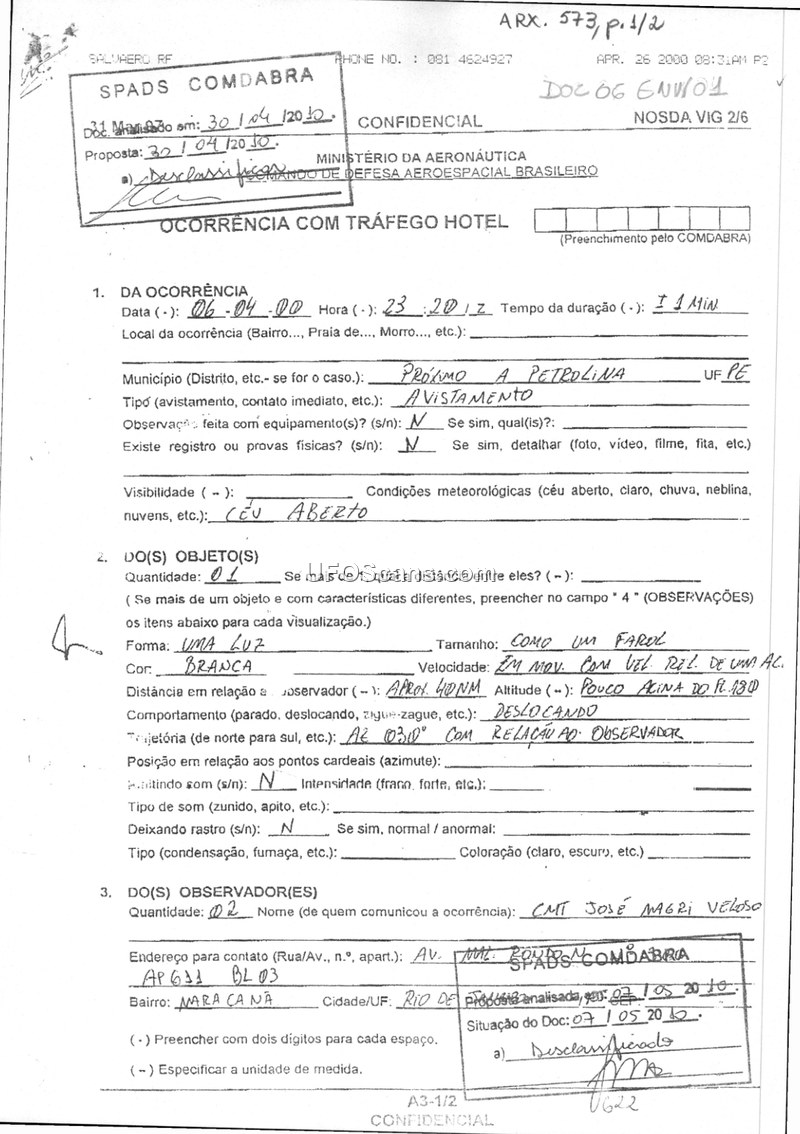 ARX. 573, p. 1/2
SALVAERO RF PHONE NO. : 081 4624927 APR. 26 2000 08:31AM P2
SPADS COMDABRA
DOC 06 ENV 01
31 Mar 97
Doc. analisado em: 30 / 04 / 2010.
CONFIDENCIAL
NOSDA VIG 2/6
Proposta: 30 / 04 / 2010.
a) Desclassificar
MINISTÉRIO DA AERONÁUTICA
COMANDO DE DEFESA AEROESPACIAL BRASILEIRO
OCORRÊNCIA COM TRÁFEGO HOTEL
(Preenchimento pelo COMDABRA)
1. DA OCORRÊNCIA
Data ( · ): 06 - 04 - 00 Hora ( · ): 23 : 20 / Z Tempo da duração ( · ): ± 1 MIN
Local da ocorrência (Bairro..., Praia de..., Morro..., etc.):
Município (Distrito, etc.- se for o caso.): PRÓXIMO A PETROLINA UF PE
Tipo (avistamento, contato imediato, etc.): AVISTAMENTO
Observação feita com equipamento(s)? (s/n): N Se sim, qual(is)?:
Existe registro ou provas físicas? (s/n): N Se sim, detalhar (foto, vídeo, filme, fita, etc.)
Visibilidade ( ~ ): Condições meteorológicas (céu aberto, claro, chuva, neblina,
nuvens, etc.): CÉU ABERTO
2. DO(S) OBJETO(S)
UFOScans.com
Quantidade: 01 Se mais de 1, qual a distância entre eles? ( ~ ):
( Se mais de um objeto e com características diferentes, preencher no campo " 4 " (OBSERVAÇÕES)
os itens abaixo para cada visualização.)
Forma: UMA LUZ Tamanho: COMO UM FAROL
Cor: BRANCA Velocidade: EM MOV. COM VEL. REL. DE UMA AC.
Distância em relação a observador ( ~ ): APROX. 40NM Altitude ( ~ ): POUCO ACIMA DO FL 180
Comportamento (parado, deslocando, zigue-zague, etc.): DESLOCANDO
Trajetória (de norte para sul, etc.): AZ 030° COM RELAÇÃO AO OBSERVADOR
Posição em relação aos pontos cardeais (azimute):
Emitindo som (s/n): N Intensidade (fraco, forte, etc.):
Tipo de som (zunido, apito, etc.):
Deixando rastro (s/n): N Se sim, normal / anormal:
Tipo (condensação, fumaça, etc.): Coloração (claro, escuro, etc.)
3. DO(S) OBSERVADOR(ES)
Quantidade: 02 Nome (de quem comunicou a ocorrência): CMT JOSÉ MAGRI VELOSO
Endereço para contato (Rua/Av., n.º, apart.): AV. MAL. RONDON
AP 611 BL 03
SPADS COMDABRA
Bairro: MARACANÃ Cidade/UF: RIO DE
Proposta analisada em: 07 / 05 20 10.
Situação do Doc: 07 / 05 20 10.
a) Desclassificado
( · ) Preencher com dois dígitos para cada espaço.
( ~ ) Especificar a unidade de medida.
A3-1/2
CONFIDENCIAL